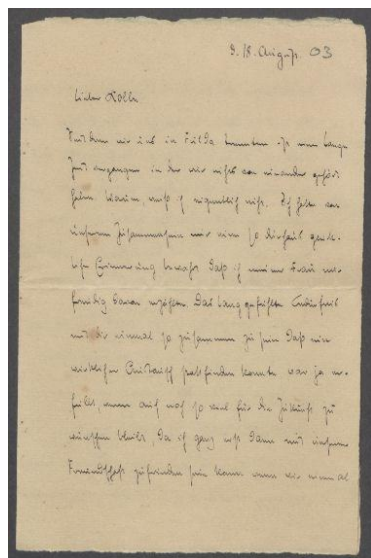 d. 18. August. 03
Lieber Kolbe
Seitdem wir uns in Fulda trennten ist eine lange
Zeit vergangen in der wir nichts von einander gehört
haben warum, weiß ich eigentlich nicht. Ich habe von
unserem Zusammensein mir eine so durchaus
Erinnerung bewahrt daß ich meiner Frau nur
freudig davon erzählte. Das lang gefühlte Bedürfnis
mit dir einmal so zusammen zu sein daß ein
wirklicher Austausch stattfinden konnte war ja er-
füllt, wenn auch noch so viel für die Zukunft zu
wünschen bleibt, da ich ganz erst dann mit unserer
Freundschaft zufrieden sein kann wenn wir einmal